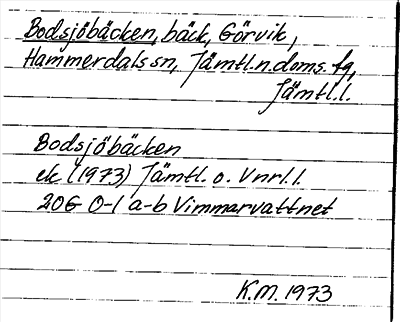 Bodsjöbäcken, bäck, Görvik,
Hammerdals sn, Jämtl.n.doms. fg,
Jämtl.l.
Bodsjöbäcken
ek (1973) Jämtl. o. Vnrl.l.
20G 0-1 a-b Vimmarvattnet
K.M. 1973